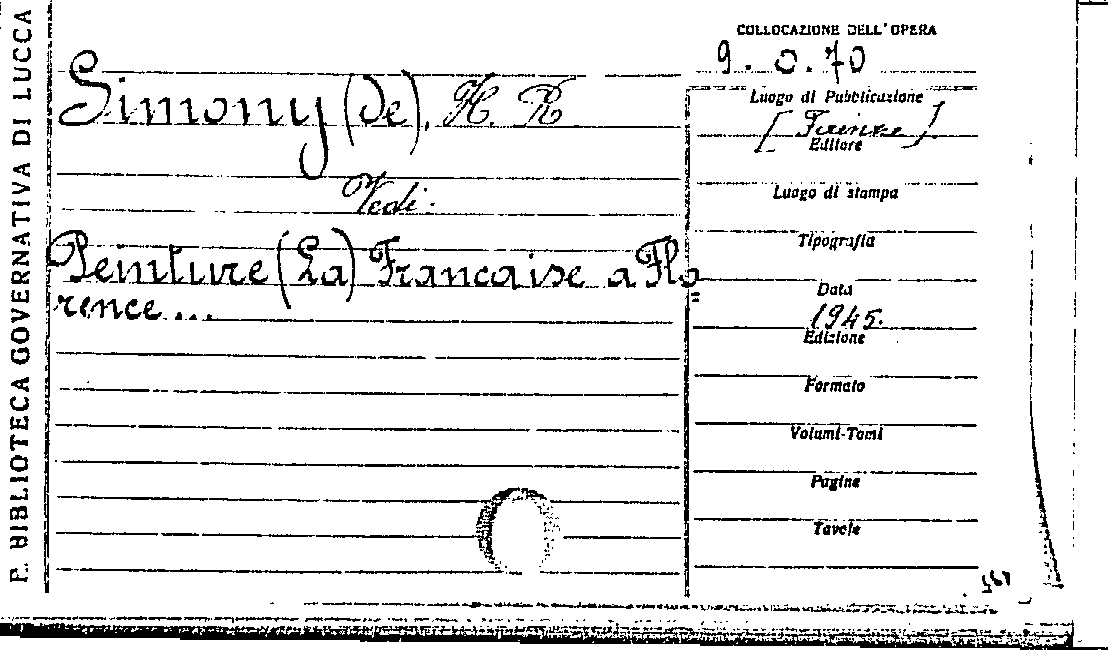 R. BIBLIOTECA GOVERNATIVA DI LUCCA
COLLOCAZIONE DELL'OPERA
9. O. 70
Simony (De), H. R
Vedi:
Peinture (La) Francaise a Flo=
rence...
Luogo di Pubblicazione
[Firenze]
Editore
Luogo di stampa
Tipografia
Data
1945.
Edizione
Formato
Volumi-Tomi
Pagine
Tavole